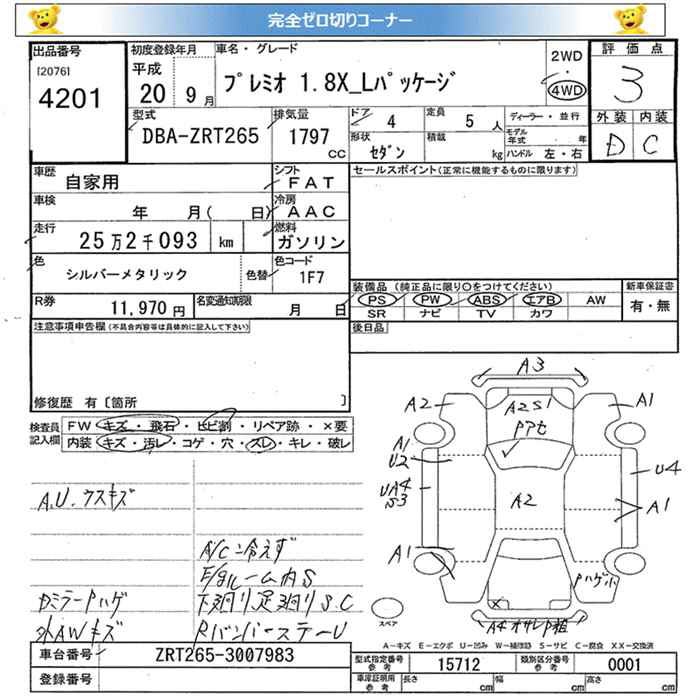 完全ゼロ切りコーナー
出品番号 初度登録年月 車名・グレード 2WD 評価点
[2076] 平成 ・ 3
4201 20 9月 プレミオ 1.8X_Lパッケージ 4WD
型式 排気量 ドア 4 定員 5人 ディーラー・並行 外装 内装
DBA-ZRT265 1797cc 形状 セダン 積載 kg モデル年式 ・ 年 D C
ハンドル 左・右
車歴 自家用 シフト FAT セールスポイント(正常に機能するものに限ります)
車検 年 月( 日) 冷房 AAC
走行 25万2千093 km 燃料 ガソリン
色 シルバーメタリック 色替 色コード 1F7
装備品 (純正品に限り○をつけてください) 新車保証書
R券 11,970円 名変通知期限 月 日 PS PW ABS エアB AW 有・無
SR ナビ TV カワ
注意事項申告欄(不具合内容等は具体的に記入して下さい) 後日品
修復歴 有〔箇所 〕
検査員記入欄 FW キズ・飛石・ヒビ割・リペア跡・×要
内装 キズ・汚レ・コゲ・穴・スレ・キレ・破レ
A3
A2 A2S1 A1
PPセ
A1
U2 U4
UA4
S3 A2 A1
A1
Pハゲ小
A.U.ウスキズ
A/C冷えず
E/gルーム内S
Dミラーハゲ 下廻り足廻りS.C
外AWキズ Rバンパーステーu
スペア
A4オサレP粗
A-キズ E-エクボ U-凹み W-補修跡 S-サビ C-腐食 XX-交換済
車台番号 ZRT265-3007983 型式指定番号 参考 15712 類別区分番号 参考 0001
登録番号 車庫証明用 参考 長さ cm 幅 cm 高さ cm